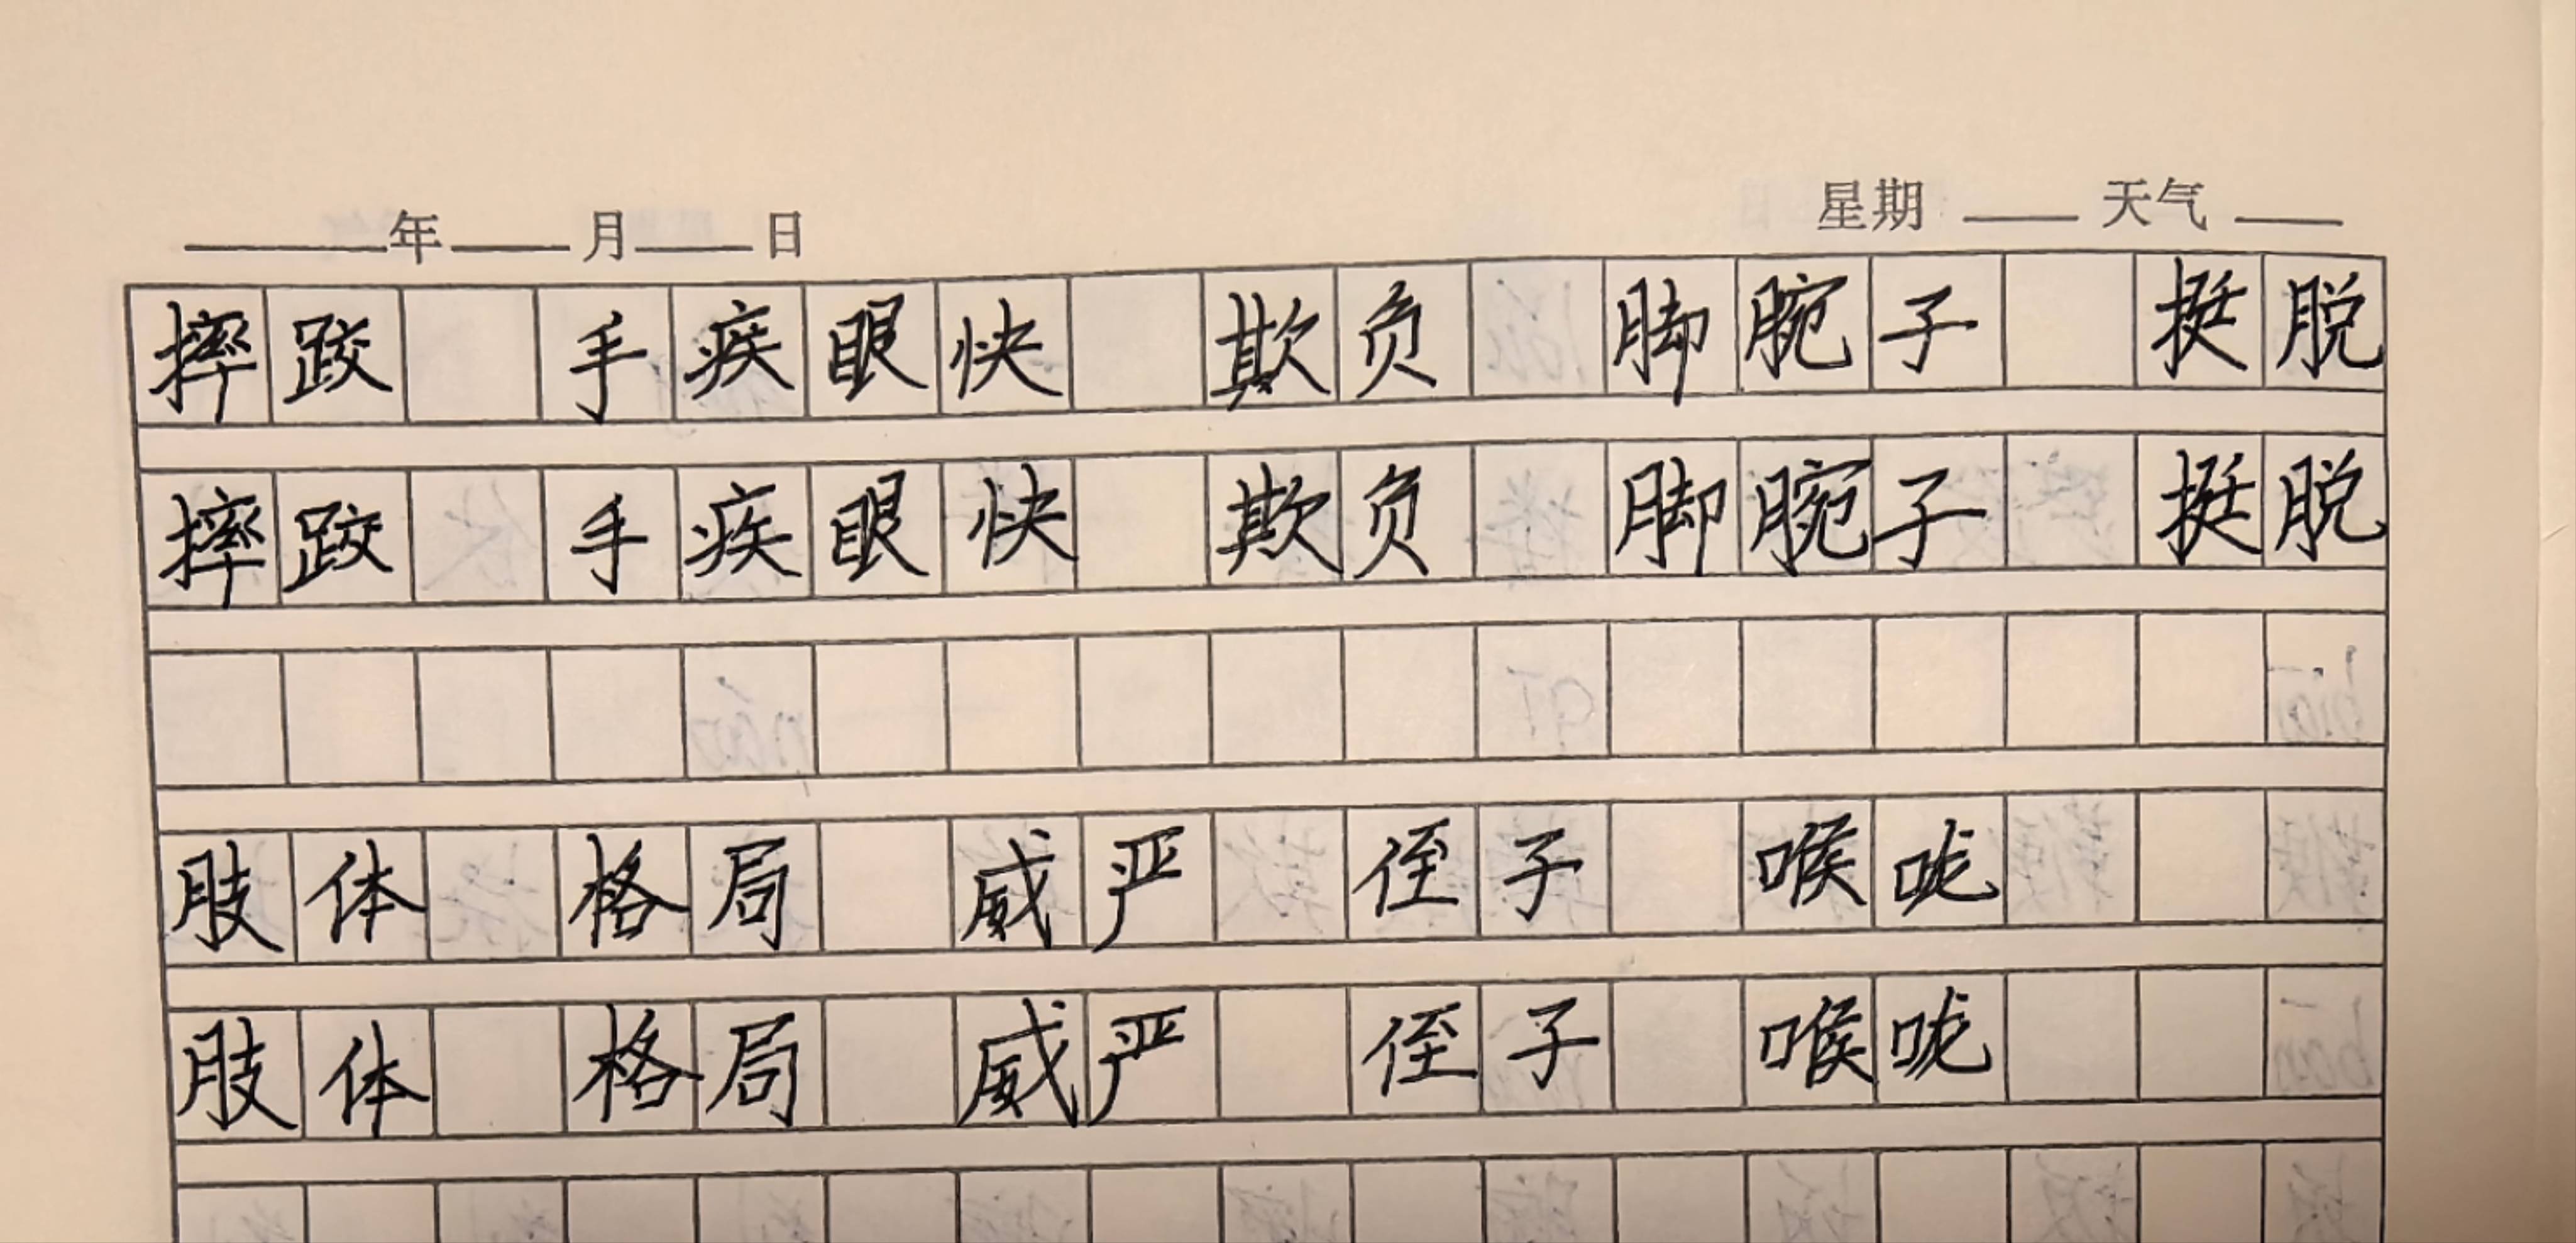 年 月 日 星期 天气
摔跤 手疾眼快 欺负 脚腕子 挺脱
摔跤 手疾眼快 欺负 脚腕子 挺脱
肢体 格局 威严 侄子 喉咙
肢体 格局 威严 侄子 喉咙